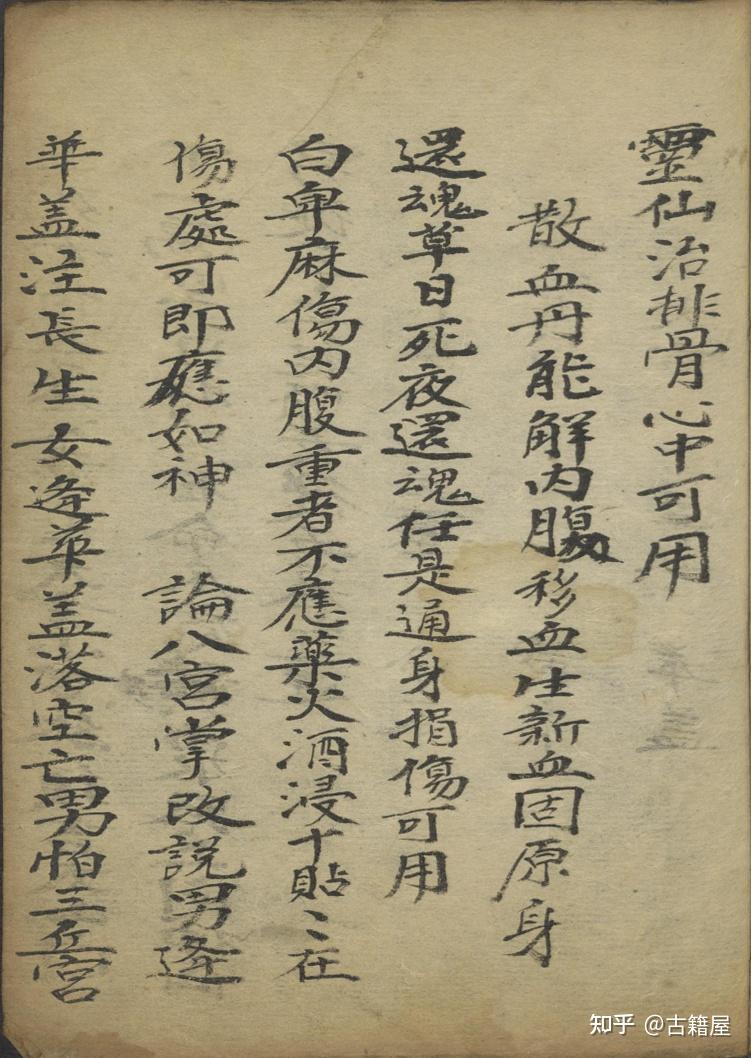 靈仙治排骨心中可用
散血丹能解內腸移血生新血固原身
還魂草日死夜還魂任是通身損傷可用
白卑麻傷內腹重者不應藥火酒浸十貼〻在
傷處可即應如神 論八宮掌改説男逢
華盖注長生女逢華盖落空亡男怕三丘宮
知乎 @古籍屋